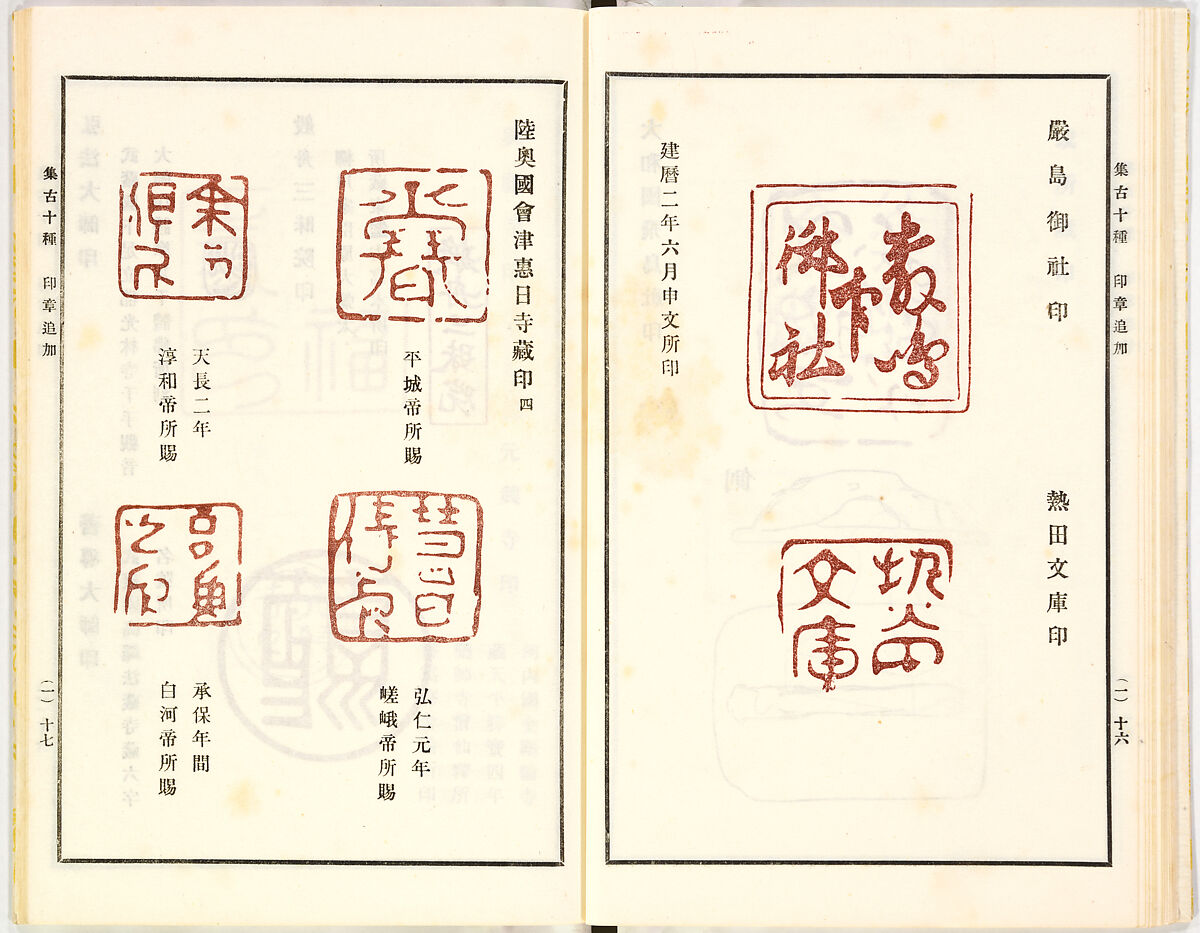 集古十種　印章追加
嚴島御社印
建曆二年六月申文所印
熱田文庫印
文庫
(一)十六
陸奥國會津惠日寺藏印四
平城帝所賜
弘仁元年
嵯峨帝所賜
天長二年
淳和帝所賜
承保年間
白河帝所賜
集古十種　印章追加
(一)十七